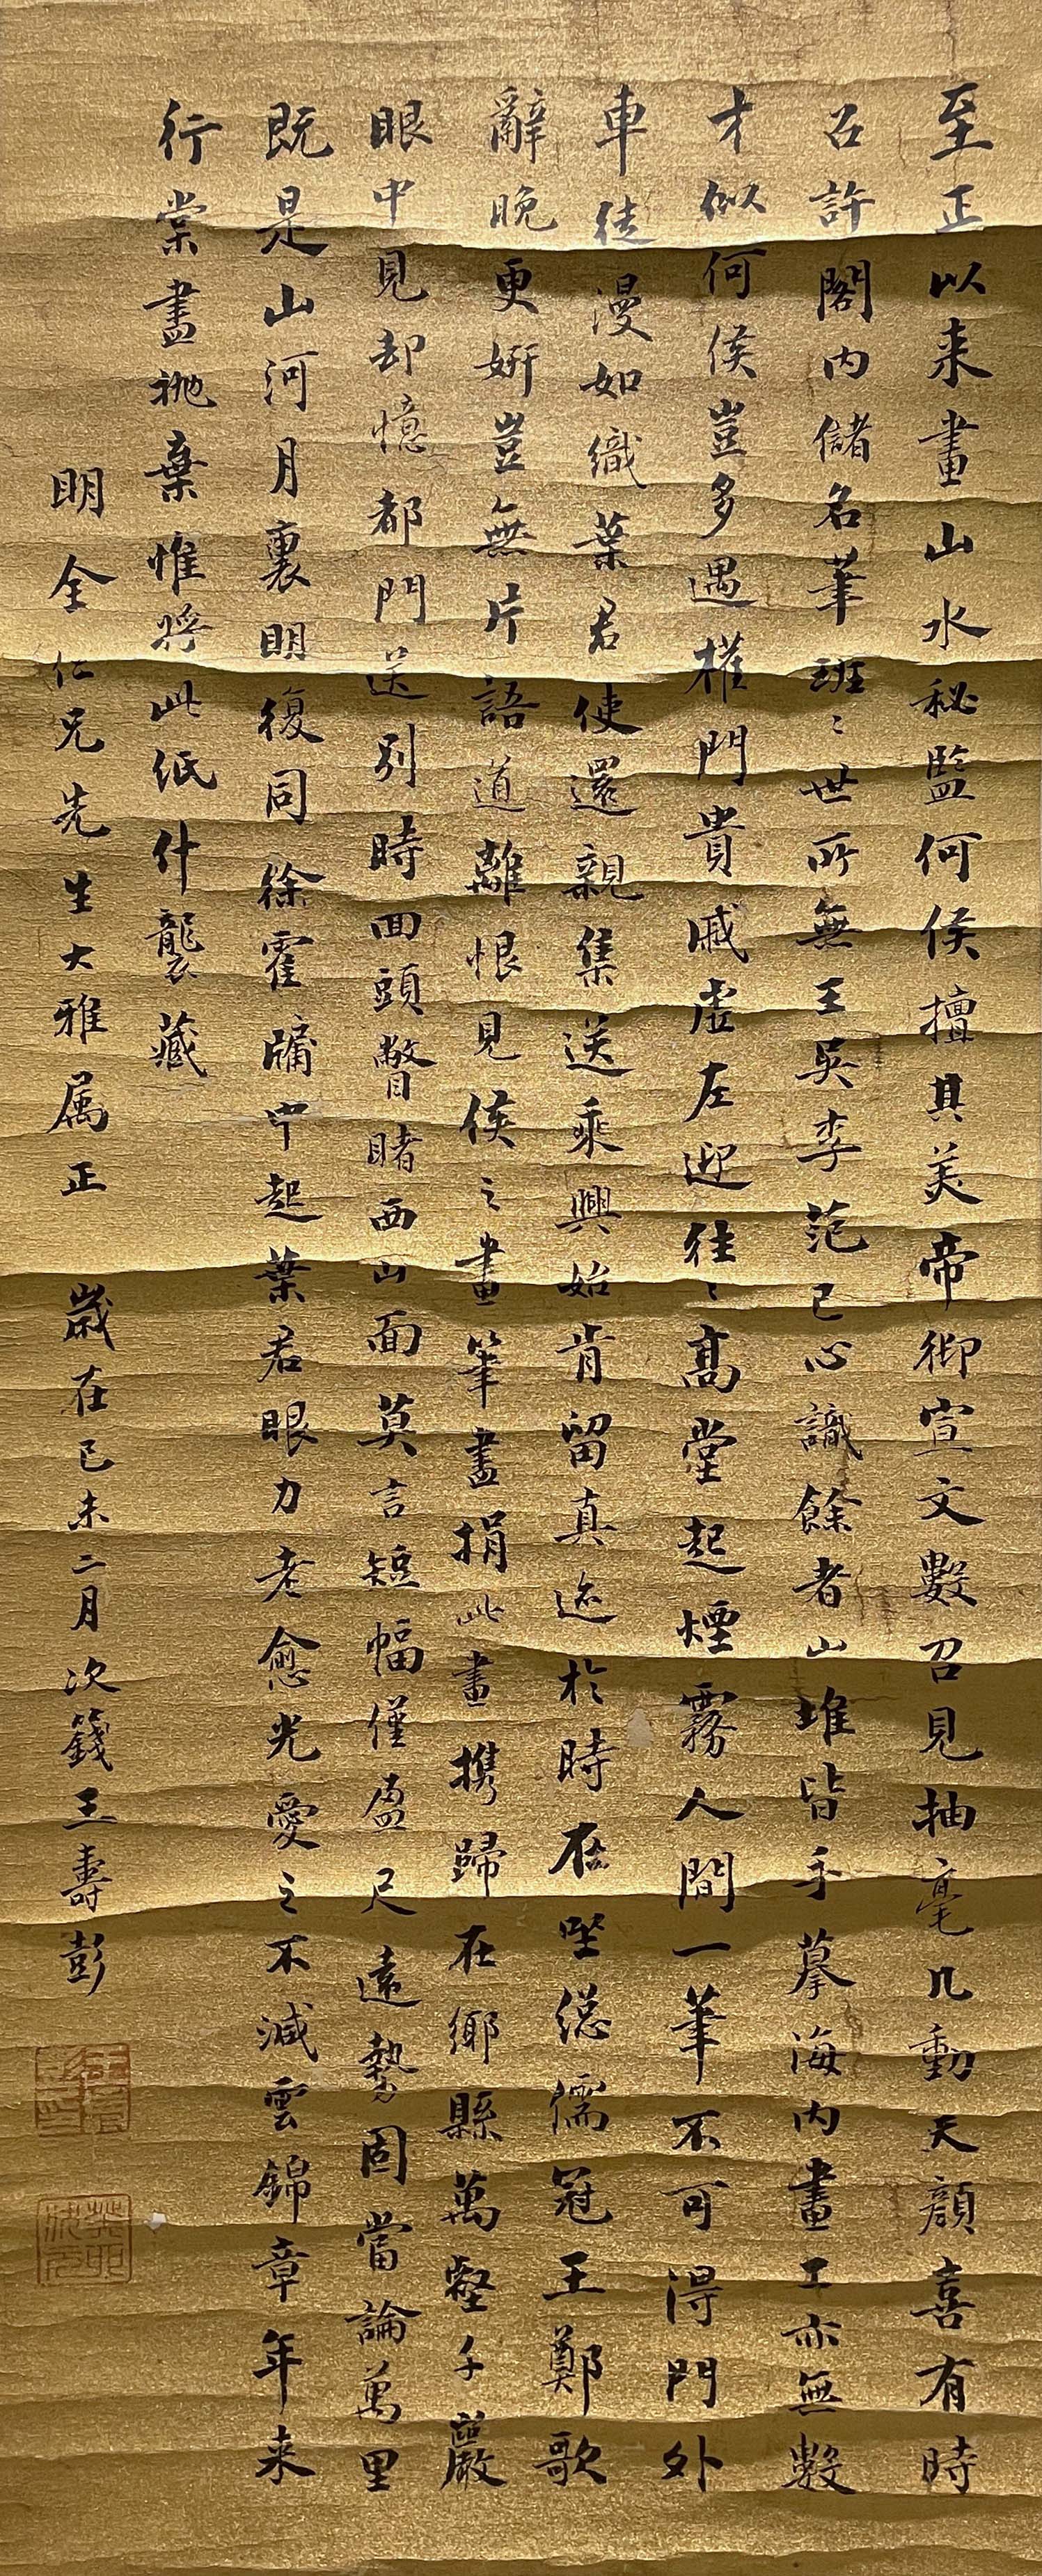 至正以来畫山水秘監何侯擅其美帝御宣文數召見抽毫凢動天顔喜有時
召許閣内儲名筆班〻世所無王吳李范已心識餘者山堆皆手摹海内畫工亦無數
才似何侯豈多遇權門貴戚虛左迎往〻高堂起煙霧人間一筆不可得門外
車徒漫如織葉君使還親集送乘興始肯留真迹於時在坐總儒冠王鄭歌
辭晚更妍豈無片語道離恨見侯之畫筆盡捐此畫携歸在鄉縣萬壑千巖
眼中見却憶都門送别時回頭瞥睹西山面莫言短幅僅盈尺遠勢固當論萬里
既是山河月裏明復同徐霍牖中起葉君眼力老愈光愛之不減雲錦章年来
行棠盡拋棄惟將此纸什襲藏
明全仁兄先生大雅属正 歲在己未二月次籛王壽彭